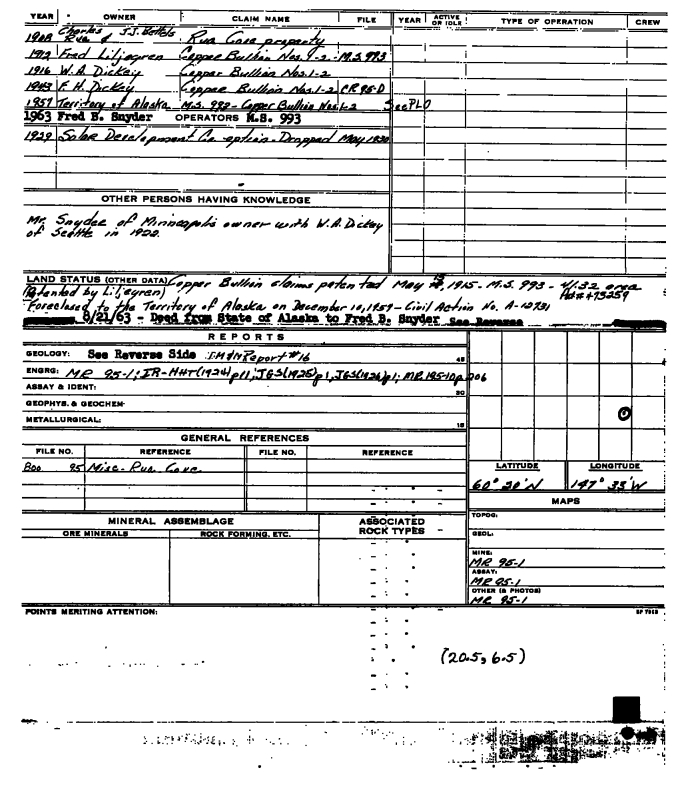 YEAR OWNER CLAIM NAME FILE YEAR ACTIVE OR IDLE TYPE OF OPERATION CREW
1908 Charles Rua & J.J. Bettels Rua Cove property
1912 Fred Liljegren Copper Bullion Nos. 1-2 M.S. 993
1916 W.A. Dickey Copper Bullion Nos. 1-2
1943 F. H. Dickey Copper Bullion Nos. 1-2 CR 95-D
1957 Territory of Alaska M.S. 993 - Copper Bullion Nos. 1-2 See PLO
1963 Fred B. Snyder OPERATORS M.S. 993
1929 Solar Development Co. option - Dropped May 1930
OTHER PERSONS HAVING KNOWLEDGE
Mr. Snyder of Minneapolis owner with W.A. Dickey
of Seattle in 1922.
LAND STATUS (OTHER DATA) Copper Bullion claims patented May 1915 - M.S. 993 - 41.32 area
(Patented by Liljegren) Pat # 473259
Foreclosed to the Territory of Alaska on December 10, 1957 - Civil Action No. A-12731
8/21/63 - Deed from State of Alaska to Fred B. Snyder See Reverse
REPORTS
GEOLOGY: See Reverse Side IM&M Report #16 45
ENGRG: MR 95-1; IR-HHT(1924) p11; JGS(1925) p1, JGS(1926) p1; MR 195-10 p. 206
30
ASSAY & IDENT:
GEOPHYS. & GEOCHEM-
METALLURGICAL: 15
GENERAL REFERENCES
FILE NO. REFERENCE FILE NO. REFERENCE
Boo 95 Misc - Rua Cove
LATITUDE LONGITUDE
60° 20' N 147° 33' W
MAPS
MINERAL ASSEMBLAGE ASSOCIATED ROCK TYPES
ORE MINERALS ROCK FORMING, ETC.
TOPOG:
GEOL:
MINE:
MR 95-1
ASSAY:
MR 95-1
OTHER (& PHOTOS)
MR 95-1
POINTS MERITING ATTENTION:
(20.5, 6.5)